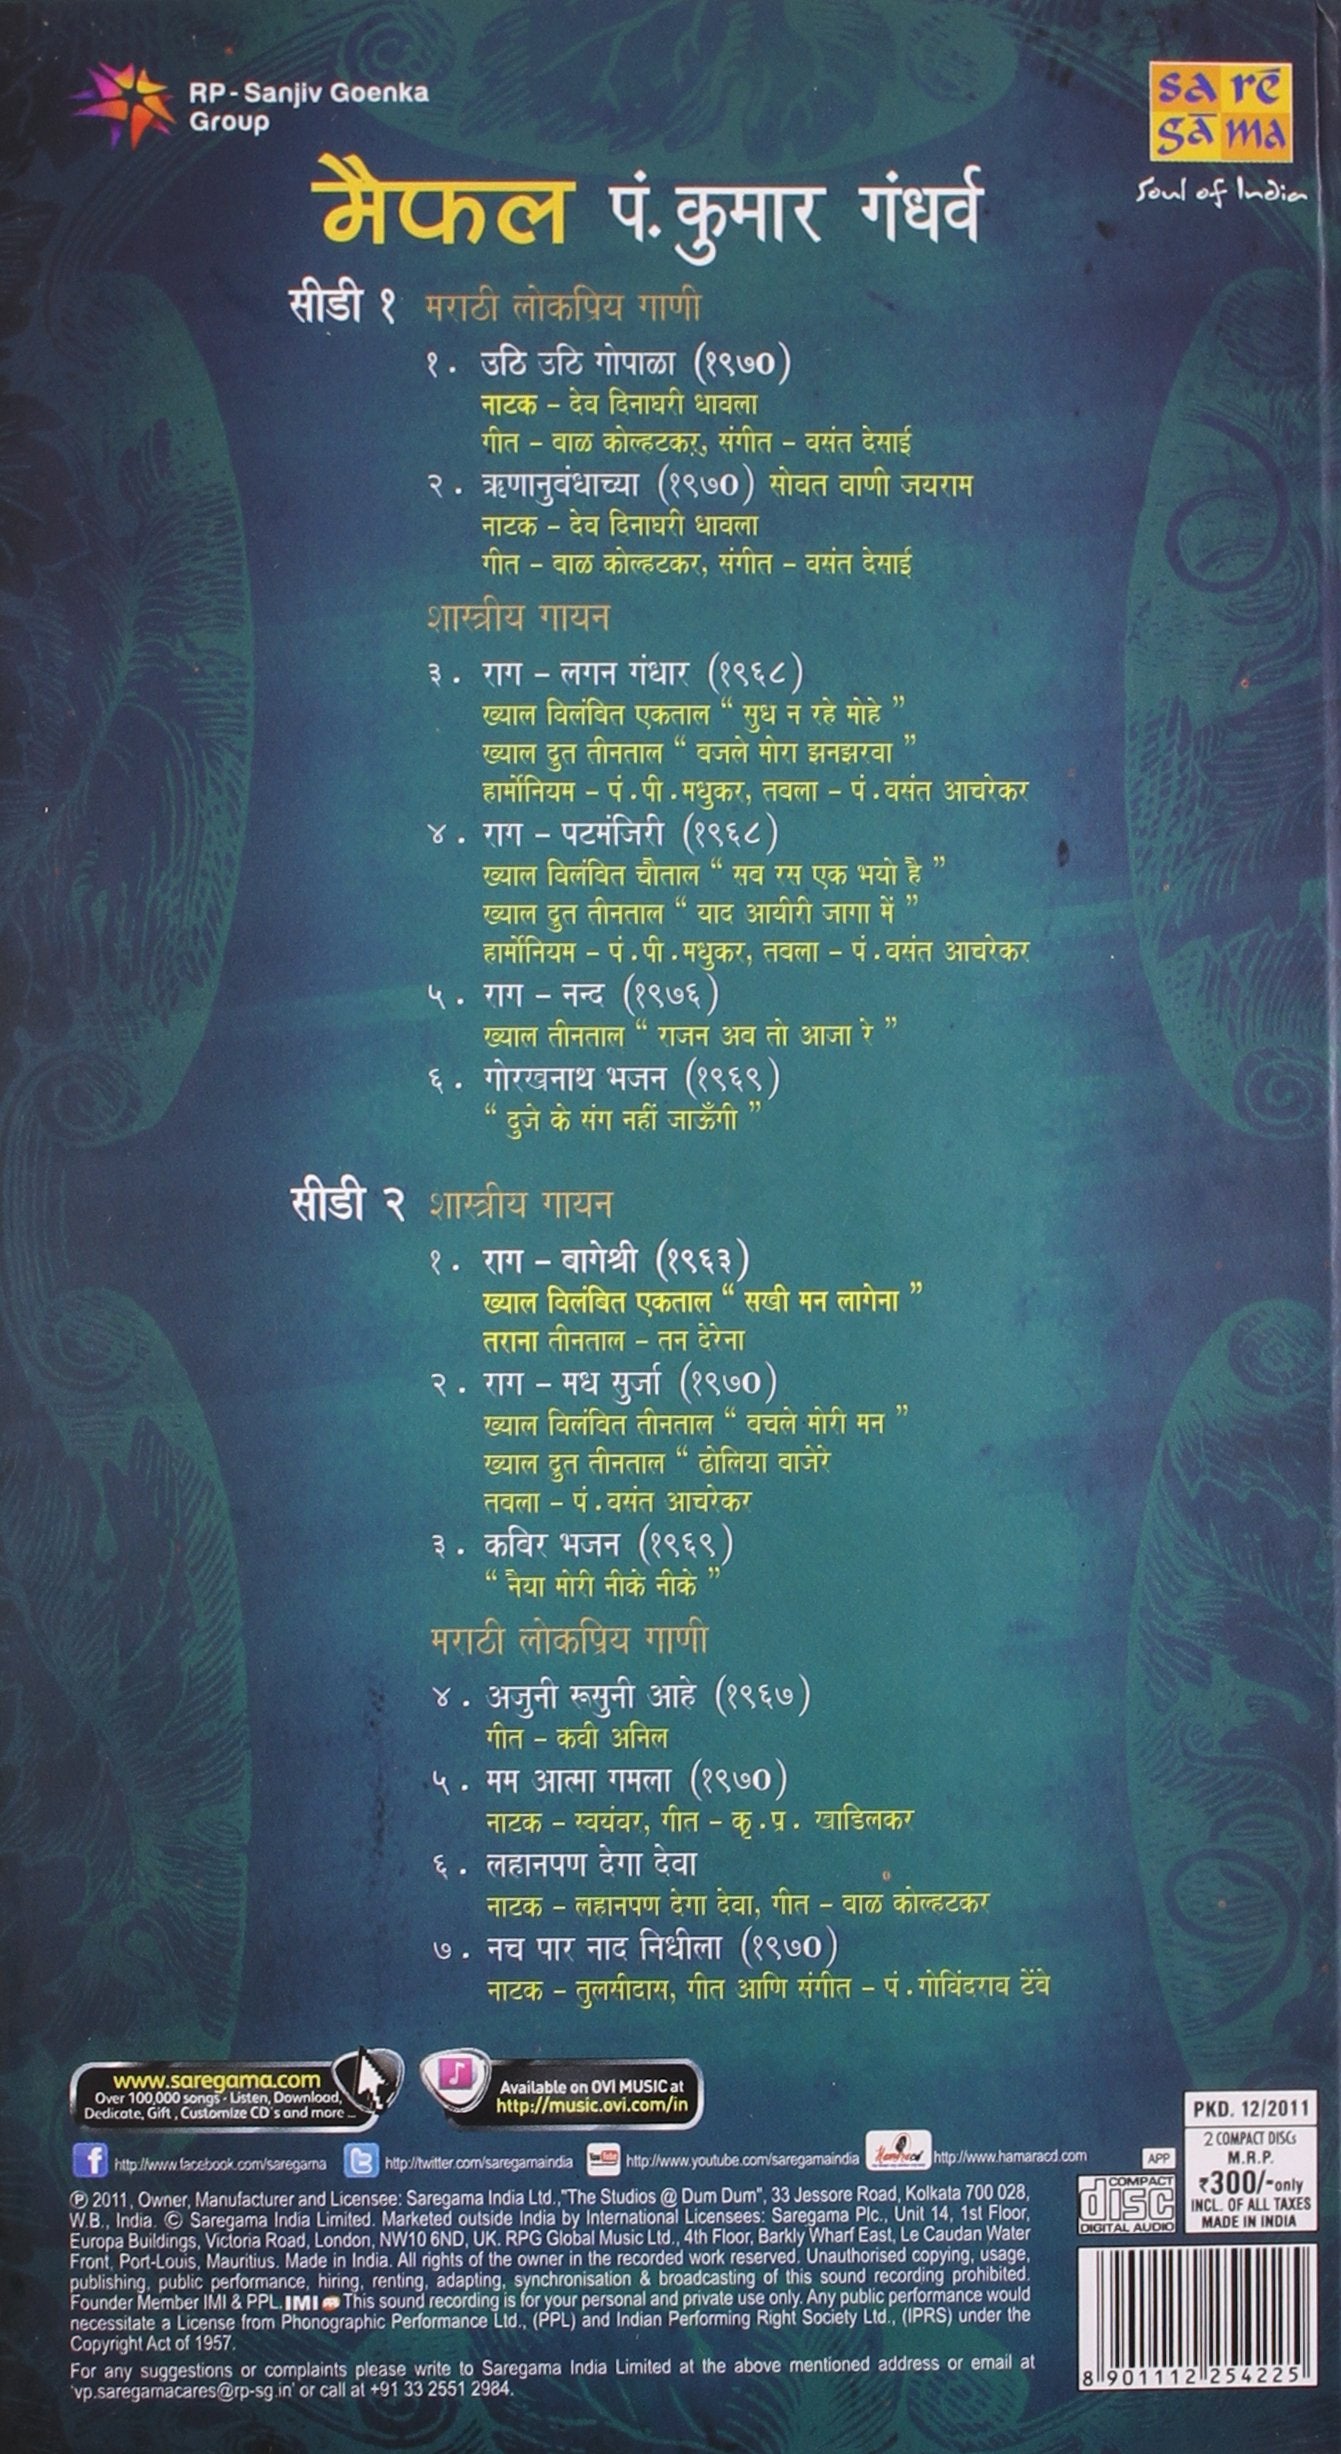 RP-Sanjiv Goenka
Group
sa rē
gā ma
Soul of India
मैफल पं. कुमार गंधर्व
सीडी १ मराठी लोकप्रिय गाणी
१. उठि उठि गोपाळा (१९७0)
नाटक - देव दिनाघरी धावला
गीत - बाळ कोल्हटकर, संगीत - वसंत देसाई
२. ऋणानुबंधाच्या (१९७0) सोबत वाणी जयराम
नाटक - देव दिनाघरी धावला
गीत - बाळ कोल्हटकर, संगीत - वसंत देसाई
शास्त्रीय गायन
३. राग - लगन गंधार (१९६८)
ख्याल विलंबित एकताल “ सुध न रहे मोहे ”
ख्याल द्रुत तीनताल “ बजले मोरा झनझरवा ”
हार्मोनियम - पं.पी.मधुकर, तबला - पं.वसंत आचरेकर
४. राग - पटमंजिरी (१९६८)
ख्याल विलंबित चौताल “ सब रस एक भयो है ”
ख्याल द्रुत तीनताल “ याद आयीरी जागा में ”
हार्मोनियम - पं.पी.मधुकर, तबला - पं.वसंत आचरेकर
५. राग - नन्द (१९७६)
ख्याल तीनताल “ राजन अब तो आजा रे ”
६. गोरखनाथ भजन (१९६९)
“ दुजे के संग नहीं जाऊँगी ”
सीडी २ शास्त्रीय गायन
१. राग - बागेश्री (१९६३)
ख्याल विलंबित एकताल “ सखी मन लागेना ”
तराना तीनताल - तन देरेना
२. राग - मध सुर्जा (१९७0)
ख्याल विलंबित तीनताल “ बचले मोरी मन ”
ख्याल द्रुत तीनताल “ ढोलिया बाजेरे
तबला - पं.वसंत आचरेकर
३. कबिर भजन (१९६९)
“ नैया मोरी नीके नीके ”
मराठी लोकप्रिय गाणी
४. अजुनी रूसुनी आहे (१९६७)
गीत - कवी अनिल
५. मम आत्मा गमला (१९७0)
नाटक - स्वयंवर, गीत - कृ.प्र. खाडिलकर
६. लहानपण देगा देवा
नाटक - लहानपण देगा देवा, गीत - बाळ कोल्हटकर
७. नच पार नाद निधीला (१९७0)
नाटक - तुलसीदास, गीत आणि संगीत - पं.गोविंदराव टेंबे
www.saregama.com
Over 100,000 songs - Listen, Download,
Dedicate, Gift, Customize CD's and more ...
Available on OVI MUSIC at
http://music.ovi.com/in
http://www.facebook.com/saregama
http://twitter.com/saregamaindia
http://www.youtube.com/saregamaindia
http://www.hamaracd.com
APP
PKD. 12/2011
2 COMPACT DISCs
M.R.P.
₹300/-only
INCL. OF ALL TAXES
MADE IN INDIA
COMPACT
disc
DIGITAL AUDIO
℗ 2011, Owner, Manufacturer and Licensee: Saregama India Ltd.,"The Studios @ Dum Dum", 33 Jessore Road, Kolkata 700 028,
W.B., India. © Saregama India Limited. Marketed outside India by International Licensees: Saregama Plc., Unit 14, 1st Floor,
Europa Buildings, Victoria Road, London, NW10 6ND, UK. RPG Global Music Ltd., 4th Floor, Barkly Wharf East, Le Caudan Water
Front, Port-Louis, Mauritius. Made in India. All rights of the owner in the recorded work reserved. Unauthorised copying, usage,
publishing, public performance, hiring, renting, adapting, synchronisation & broadcasting of this sound recording prohibited.
Founder Member IMI & PPL. IMI This sound recording is for your personal and private use only. Any public performance would
necessitate a License from Phonographic Performance Ltd., (PPL) and Indian Performing Right Society Ltd., (IPRS) under the
Copyright Act of 1957.
For any suggestions or complaints please write to Saregama India Limited at the above mentioned address or email at
'vp.saregamacares@rp-sg.in' or call at +91 33 2551 2984.
8 901112 254225